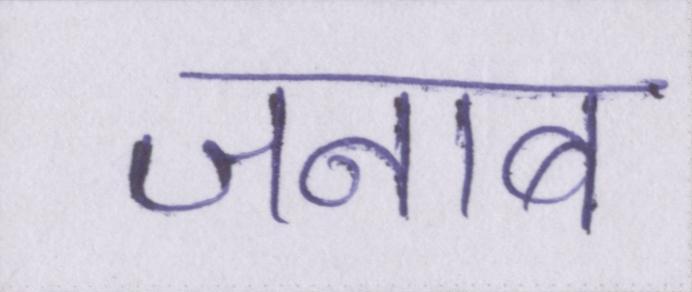 जनाब